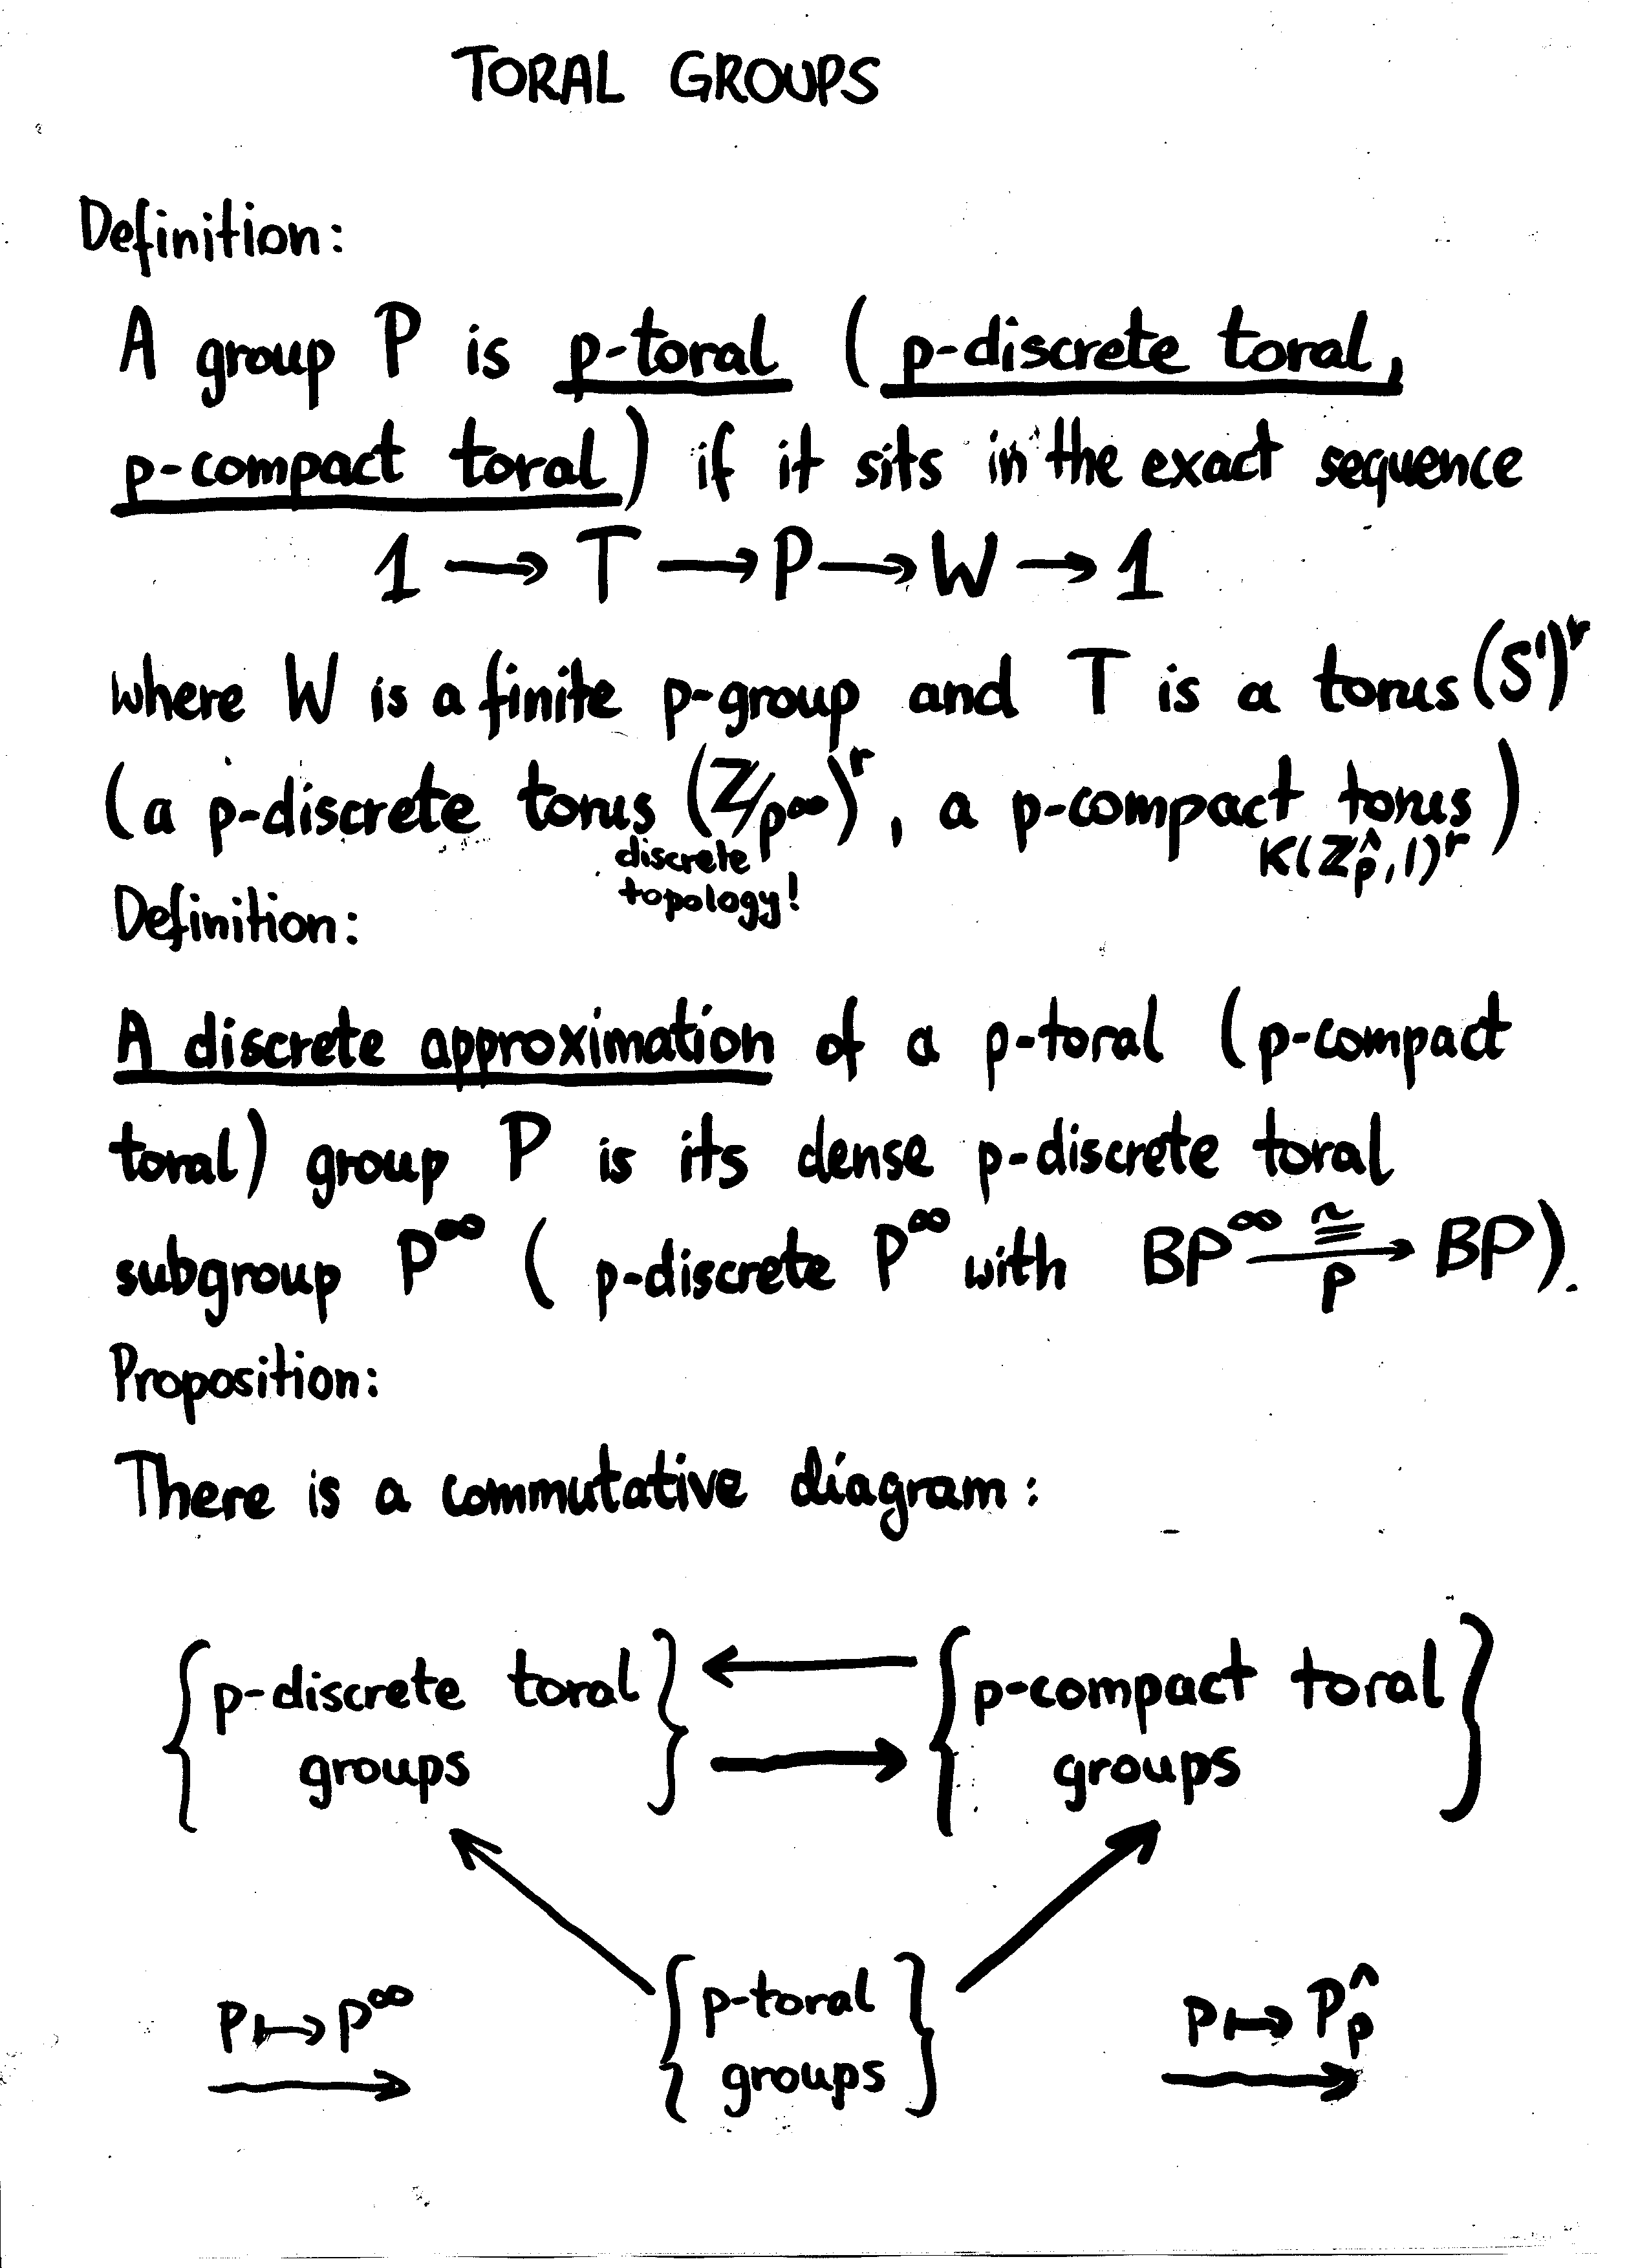 TORAL GROUPS
Definition:
A group P is p-toral (p-discrete toral,
p-compact toral) if it sits in the exact sequence
1 → T → P → W → 1
where W is a finite p-group and T is a torus (S¹)ʳ
(a p-discrete torus (Z/p∞)ʳ, a p-compact torus)
discrete topology!
K(Z^p,1)ʳ
Definition:
A discrete approximation of a p-toral (p-compact
toral) group P is its dense p-discrete toral
subgroup P^∞ (p-discrete P^∞ with BP^∞ ≅→p BP).
Proposition:
There is a commutative diagram:
{p-discrete toral groups} ← → {p-compact toral groups}
P ↦ P^∞
{p-toral groups}
P ↦ P^p